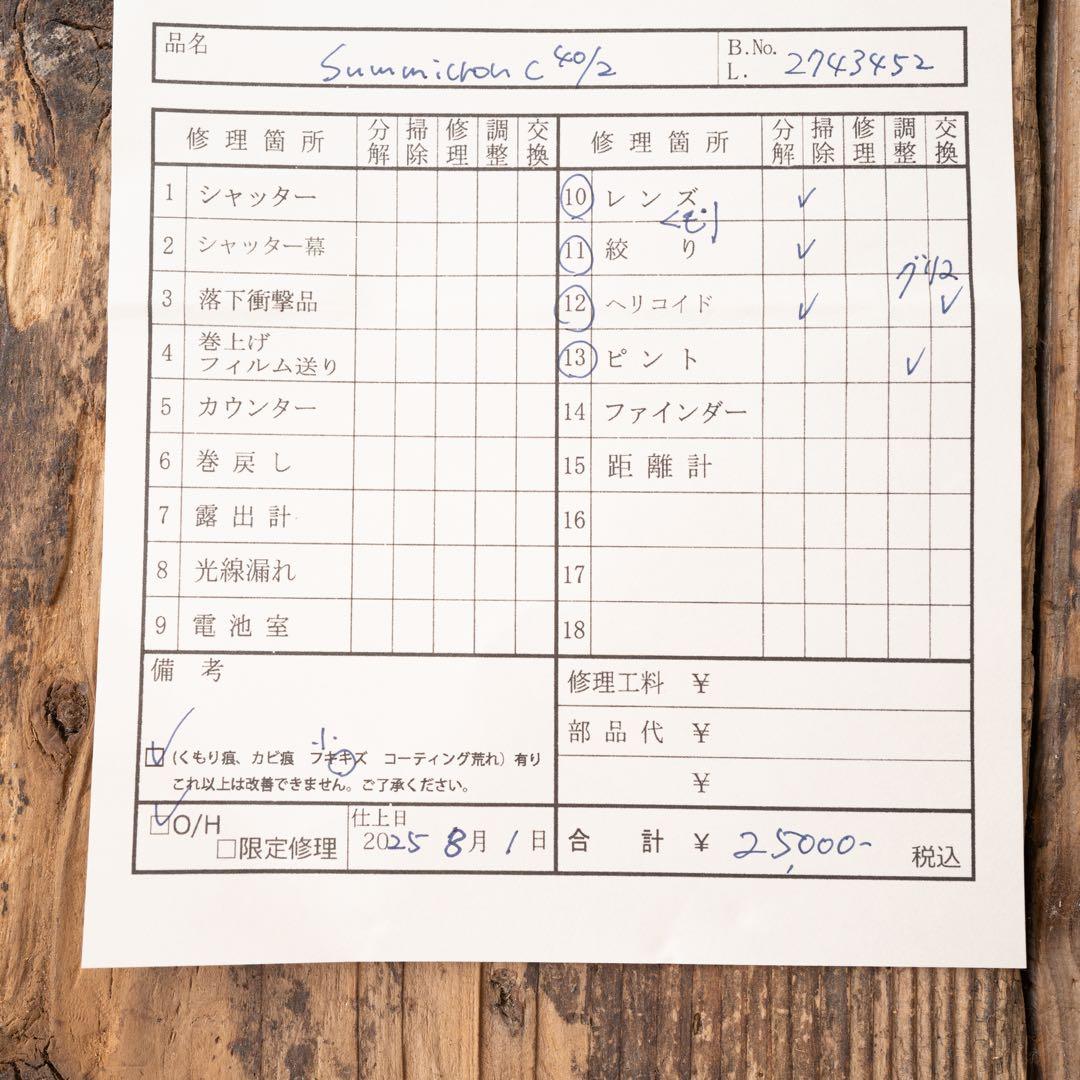 品名 Summicron C 40/2 B.No. L. 2743452
修理箇所 分解 掃除 修理 調整 交換 修理箇所 分解 掃除 修理 調整 交換
1 シャッター 10 レンズ ✓
くもり
2 シャッター幕 11 絞り ✓
グリス
3 落下衝撃品 12 ヘリコイド ✓ ✓
4 巻上げ フィルム送り 13 ピント ✓
5 カウンター 14 ファインダー
6 巻戻し 15 距離計
7 露出計 16
8 光線漏れ 17
9 電池室 18
備考
修理工料 ¥
部品代 ¥
¥
小
☑(くもり痕、カビ痕 フキキズ コーティング荒れ)有り
これ以上は改善できません。ご了承ください。
☑O/H
□限定修理
仕上日
2025 8月 1日
合計 ¥ 25,000- 税込